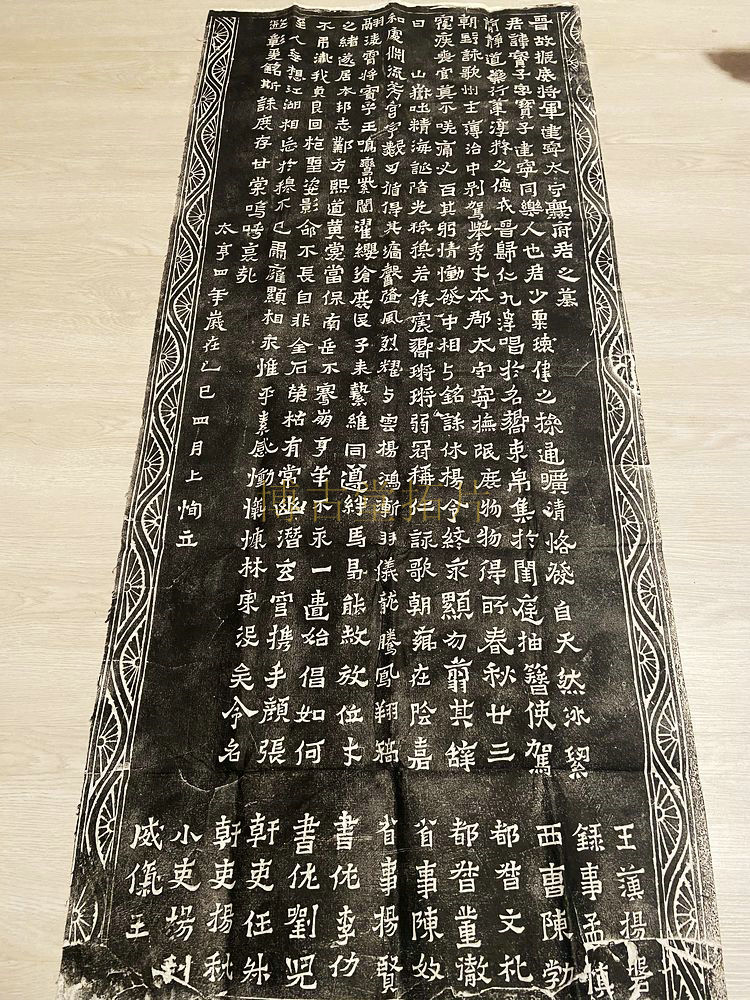 晉故振威將軍建寧太守爨府君之墓
君諱寶子字寶子建寧同樂人也君少稟瓌偉之操通曠清恪發自天然冰絜
簡靜道兼行葦淳粹之德戎晉歸仁九皋唱於名響束帛集於閨庭抽簪俟駕
朝野詠歌州主簿治中別駕舉秀才本郡太守寧撫氓庶物物得所春秋廿三
寑疾喪官莫不嗟痛人百其躬情慟發中相与銘誄休揚令終永顯勿翦其辭
曰 山嶽吐精海誕陲光穆穆君侯震響鏘鏘弱冠稱仁詠歌朝鄉在陰嘉
和處淵流芳宮宇數仞循得其墻馨隨風烈耀与雲揚鴻漸羽儀龍騰鳳翔矯
翮淩霄將賓乎王鳴鸞紫闥濯纓滄庶民子来縶維同遵絆馬曷能赦放位才
之緒遂居本邦志鄴方熙道黄裳當保南岳不騫崩享年不永一匱始倡如何
不弔殲我貞良回枹聖姿影命不長自非金石榮枯有常幽潛玄穹携手顏張
至人無想江湖相忘於穆不已肅雍顯相永惟平素感慟愾慷林宗没矣令名
遐彰爰銘斯誄庶存甘棠嗚呼哀哉
太亨四年歲在乙巳四月上恂立
主簿楊磐
録事孟慎
西曹陳勃
都督文礼
都督董徹
省事陳奴
省事楊賢
書佐李仂
書佐劉兒
幹吏任升
幹吏楊秋
小吏楊利
威儀王
博古堂拓片